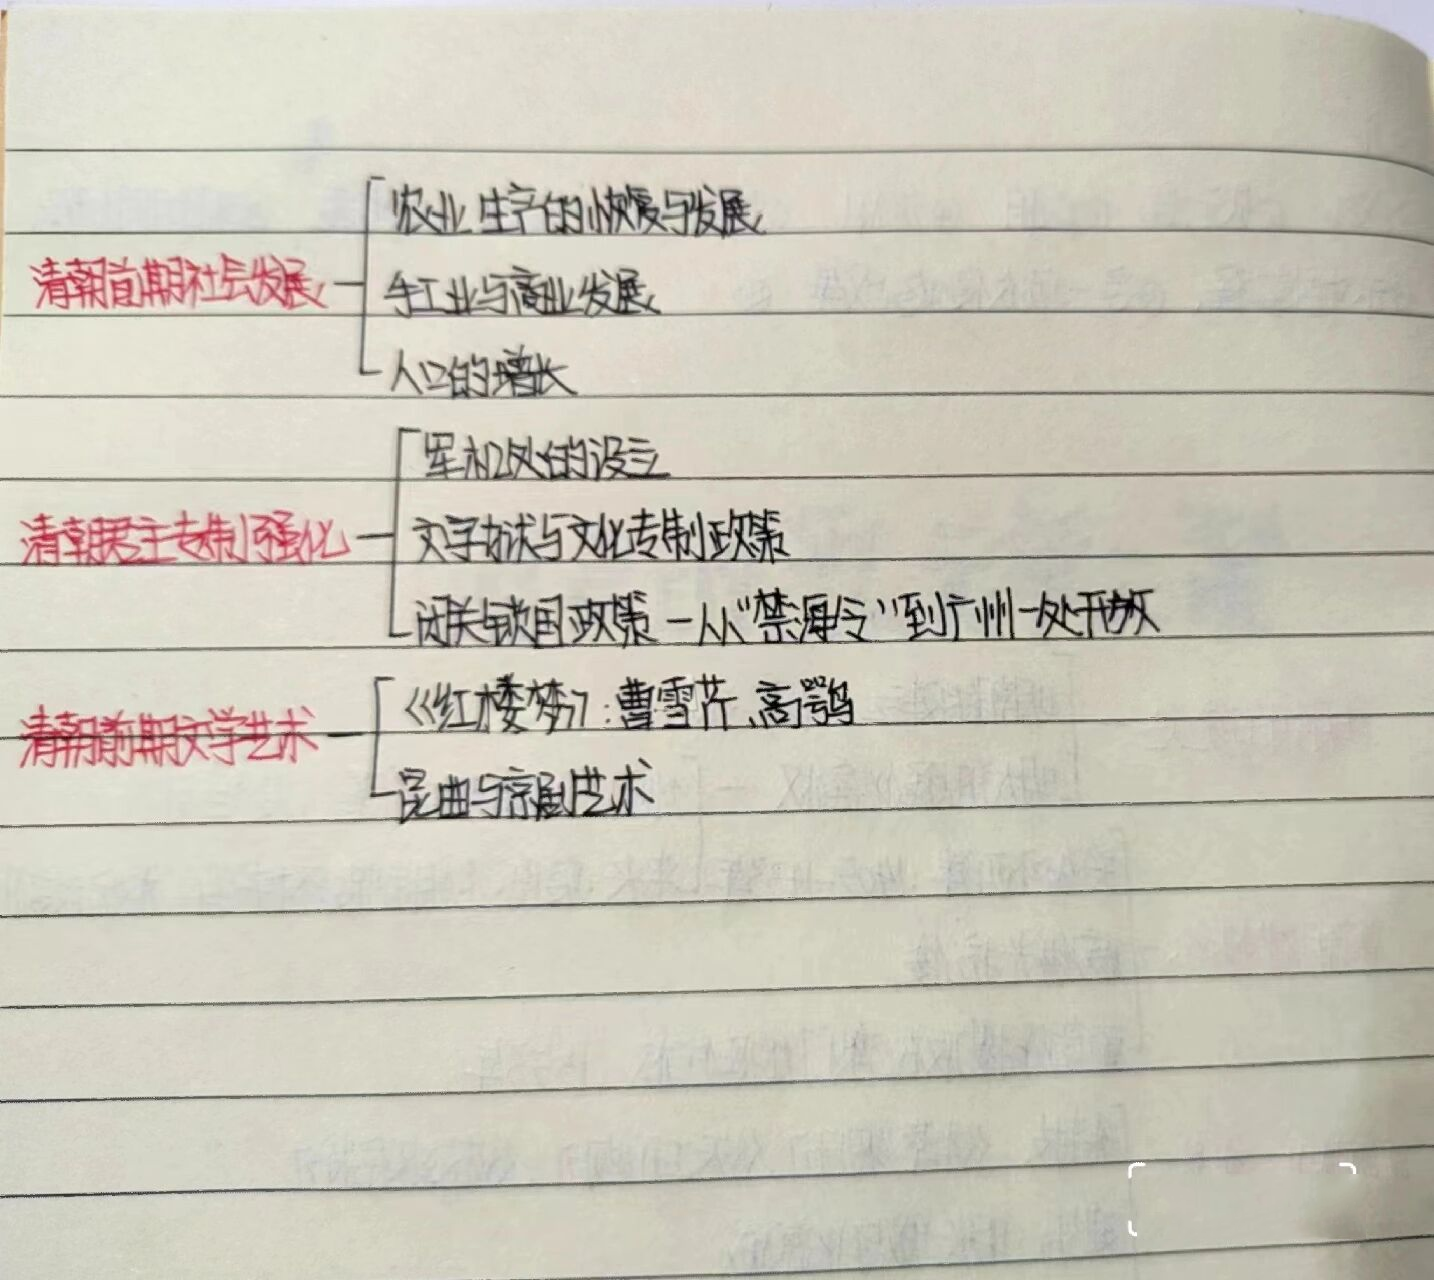 农业生产的恢复与发展
清朝前期社会发展
手工业与商业发展
人口的增长
军机处的设立
清朝君主专制强化
文字狱与文化专制政策
闭关锁国政策 — 从“禁海令”到广州一处开放
《红楼梦》:曹雪芹、高鹗
清朝前期文学艺术
昆曲与京剧艺术